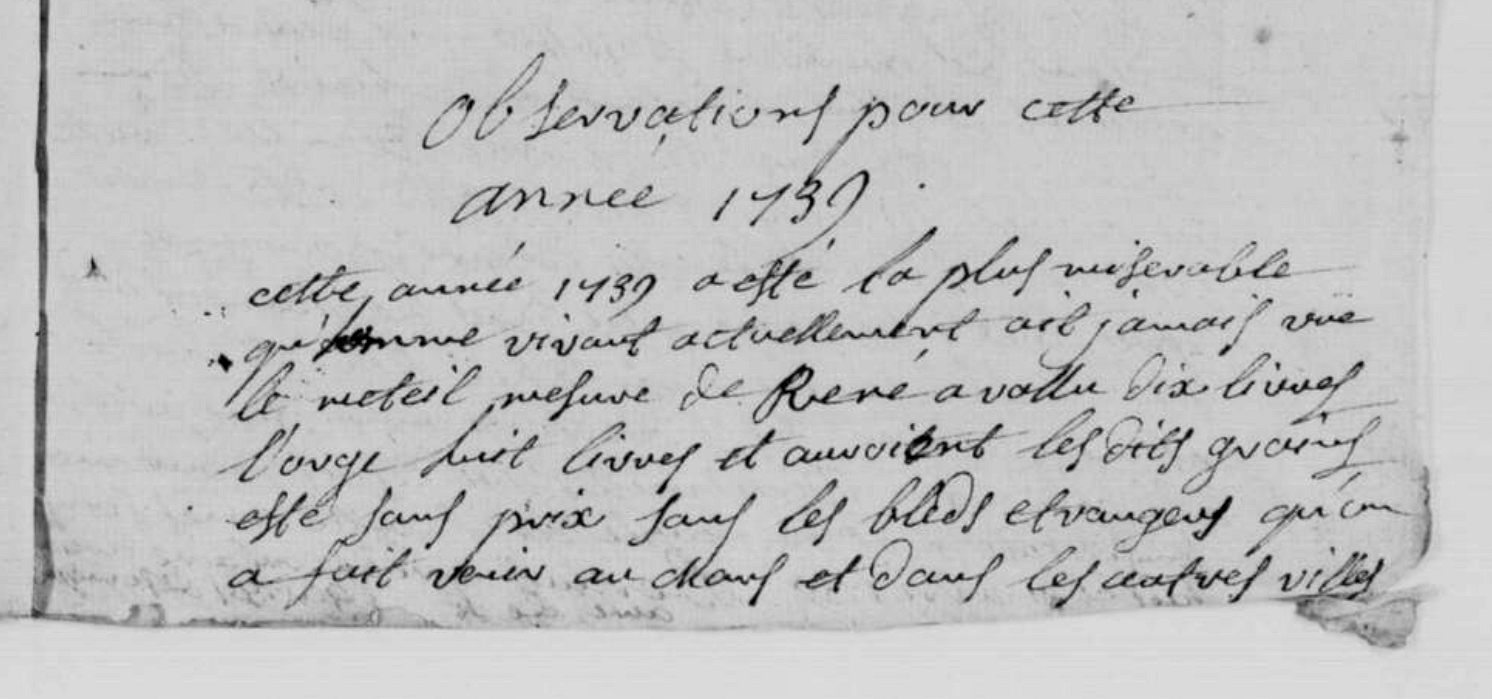 Observations pour cette
année 1739.
cette année 1739 a esté la plus miserable
qu'homme vivant actuellement ait jamais vüe
le meteil mesure de René a vallu dix livres
l'orge huit livres et auroient les dits grains
esté sans prix sans les bleds etrangers qu'on
a fait venir au Mans et dans les autres villes